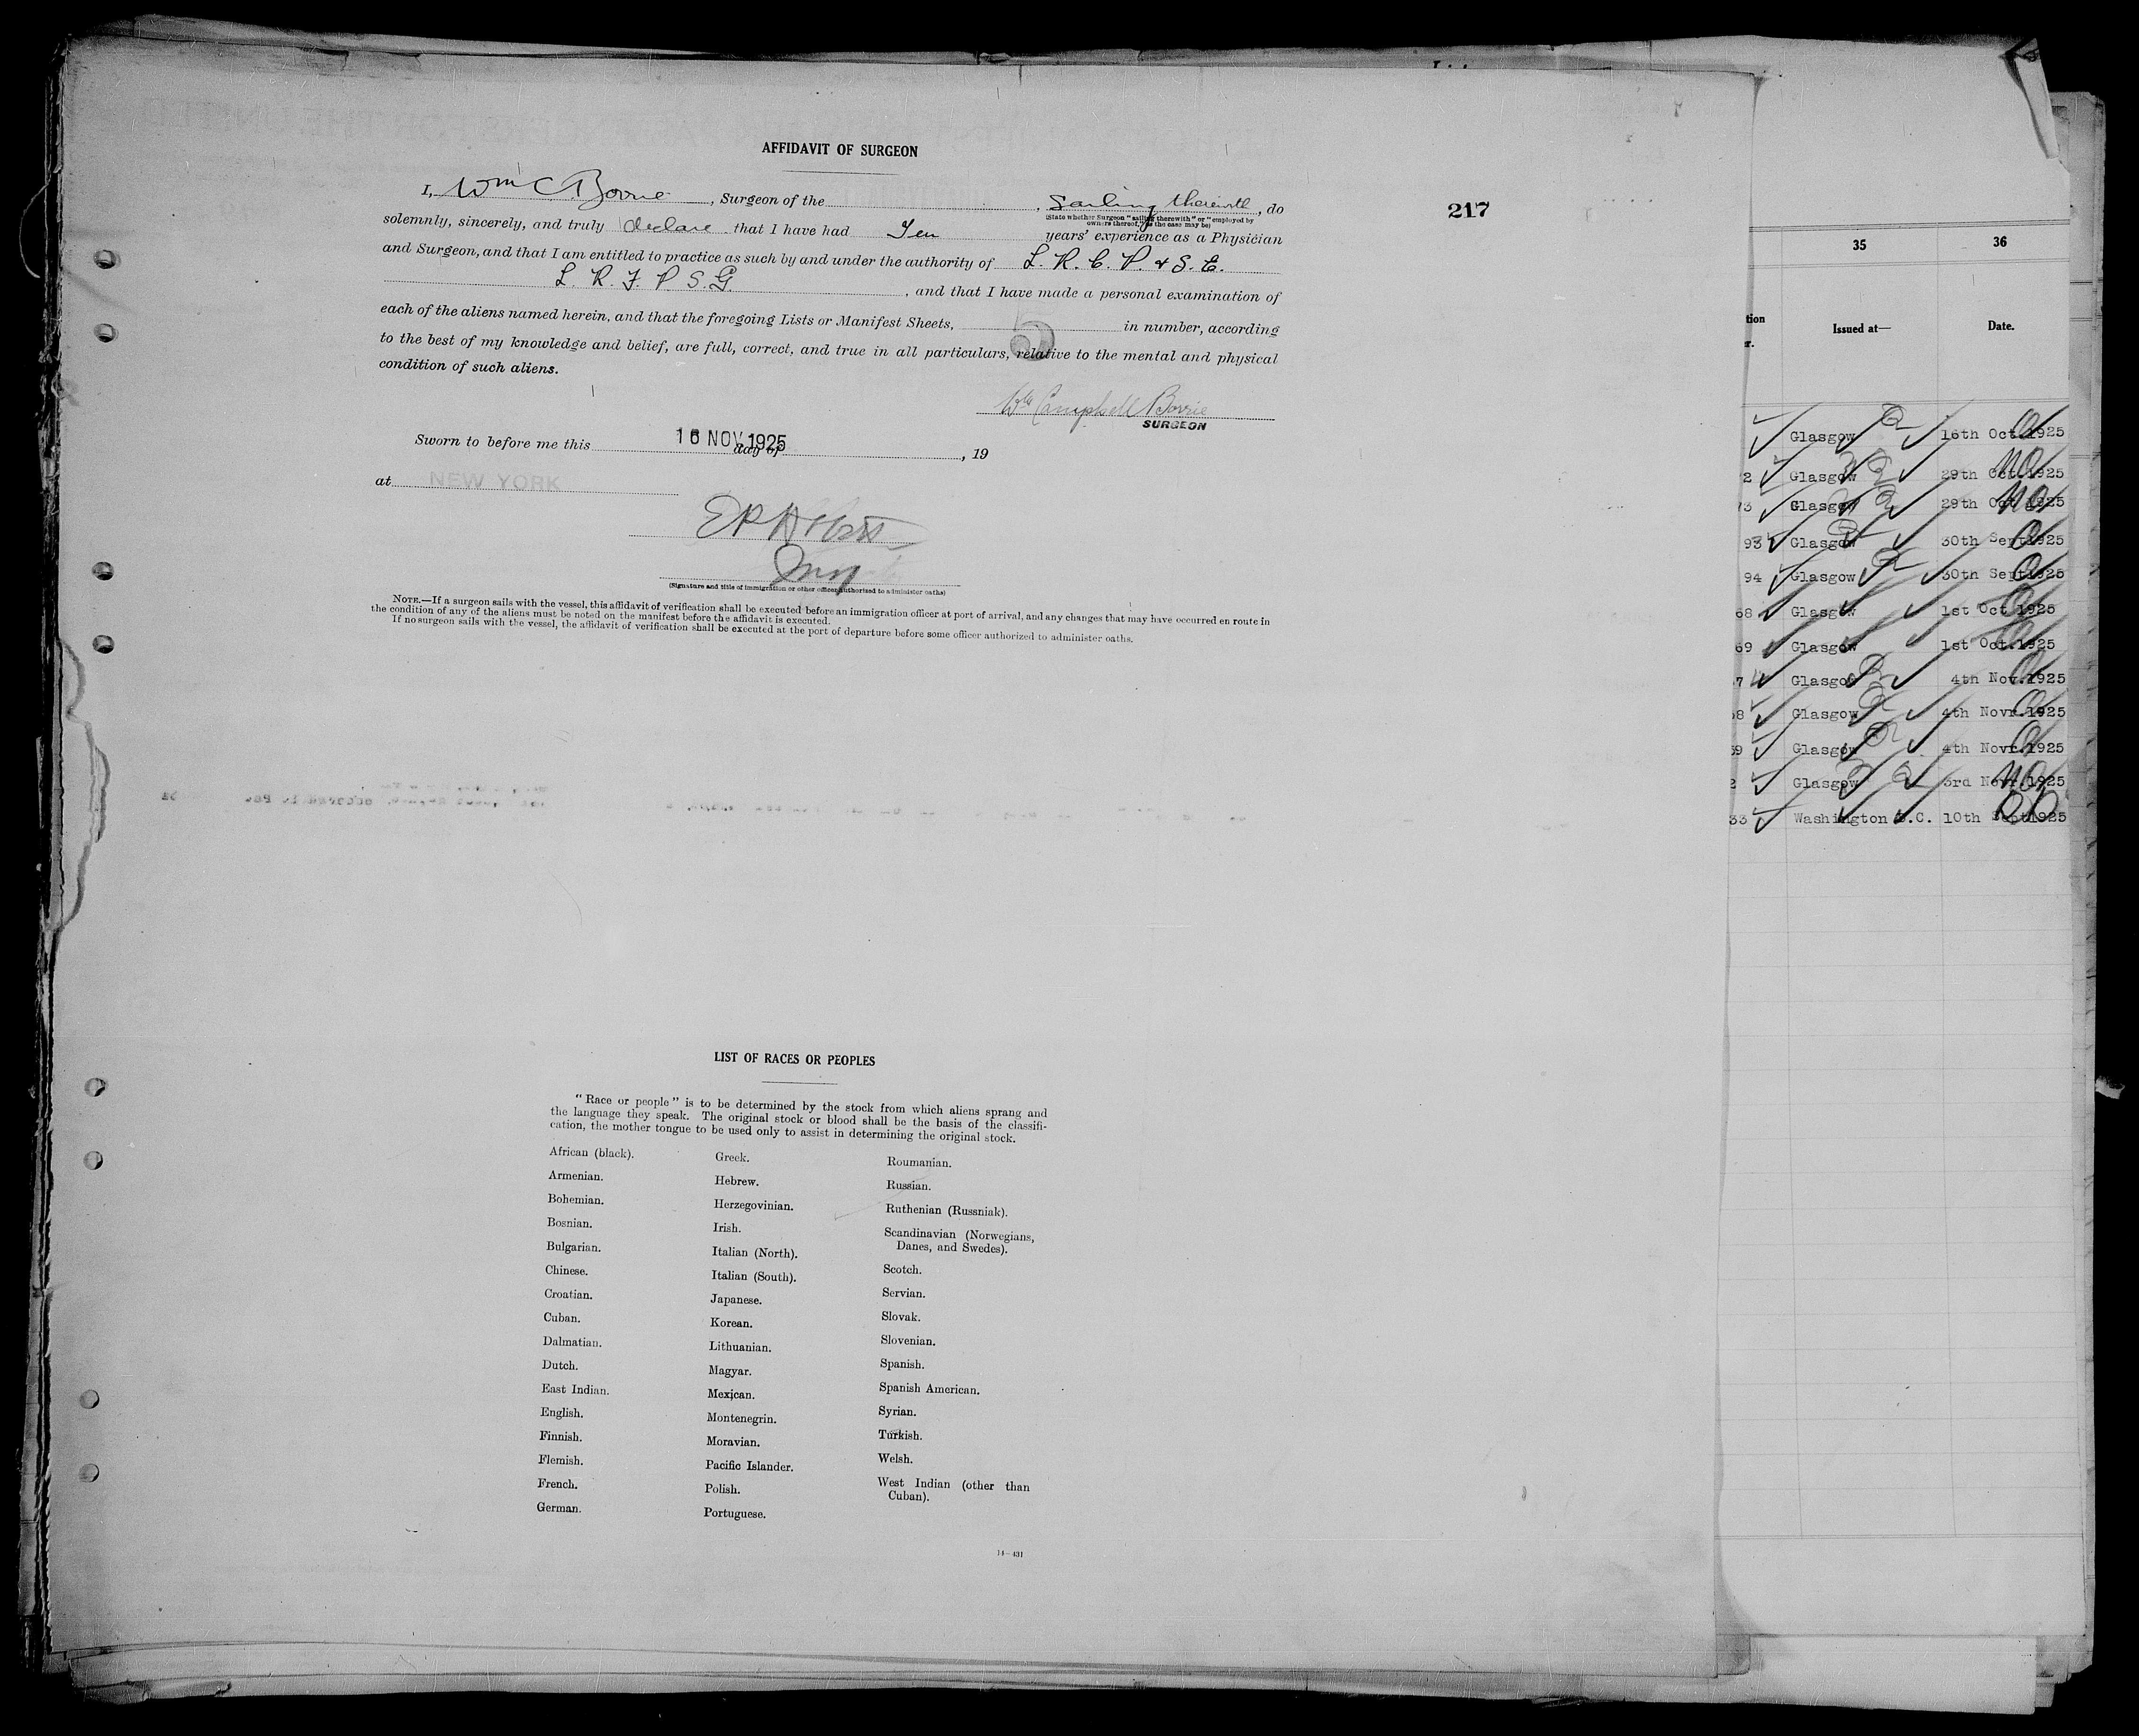 AFFIDAVIT OF SURGEON
I, Wm C Borrie, Surgeon of the , sailing therewith, do
(State whether Surgeon "sailing therewith" or "employed by
owners thereof," as the case may be)
solemnly, sincerely, and truly declare that I have had Ten years' experience as a Physician
and Surgeon, and that I am entitled to practice as such by and under the authority of L. R. C. P. & S. E.
L. R. F. P. S. G. , and that I have made a personal examination of
each of the aliens named herein, and that the foregoing Lists or Manifest Sheets, 5 in number, according
to the best of my knowledge and belief, are full, correct, and true in all particulars, relative to the mental and physical
condition of such aliens.
Wm Campbell Borrie
SURGEON
Sworn to before me this 16 NOV 1925 day of , 19
at NEW YORK
(Signature and title of immigration or other officer authorized to administer oaths)
NOTE.—If a surgeon sails with the vessel, this affidavit of verification shall be executed before an immigration officer at port of arrival, and any changes that may have occurred en route in
the condition of any of the aliens must be noted on the manifest before the affidavit is executed.
If no surgeon sails with the vessel, the affidavit of verification shall be executed at the port of departure before some officer authorized to administer oaths.
217
LIST OF RACES OR PEOPLES
"Race or people" is to be determined by the stock from which aliens sprang and
the language they speak. The original stock or blood shall be the basis of the classifi-
cation, the mother tongue to be used only to assist in determining the original stock.
African (black).
Armenian.
Bohemian.
Bosnian.
Bulgarian.
Chinese.
Croatian.
Cuban.
Dalmatian.
Dutch.
East Indian.
English.
Finnish.
Flemish.
French.
German.
Greek.
Hebrew.
Herzegovinian.
Irish.
Italian (North).
Italian (South).
Japanese.
Korean.
Lithuanian.
Magyar.
Mexican.
Montenegrin.
Moravian.
Pacific Islander.
Polish.
Portuguese.
Roumanian.
Russian.
Ruthenian (Russniak).
Scandinavian (Norwegians,
Danes, and Swedes).
Scotch.
Servian.
Slovak.
Slovenian.
Spanish.
Spanish American.
Syrian.
Turkish.
Welsh.
West Indian (other than
Cuban).
14—431
35 36
tion
Issued at— Date.
r.
Glasgow 16th Oct. 1925
2 Glasgow 29th Oct. 1925
73 Glasgow 29th Oct. 1925
93 Glasgow 30th Sept 1925
94 Glasgow 30th Sept 1925
68 Glasgow 1st Oct. 1925
69 Glasgow 1st Oct. 1925
7 Glasgow 4th Nov. 1925
58 Glasgow 4th Novr. 1925
59 Glasgow 4th Novr. 1925
2 Glasgow 3rd Novr. 1925
33 Washington D.C. 10th Sept 1925